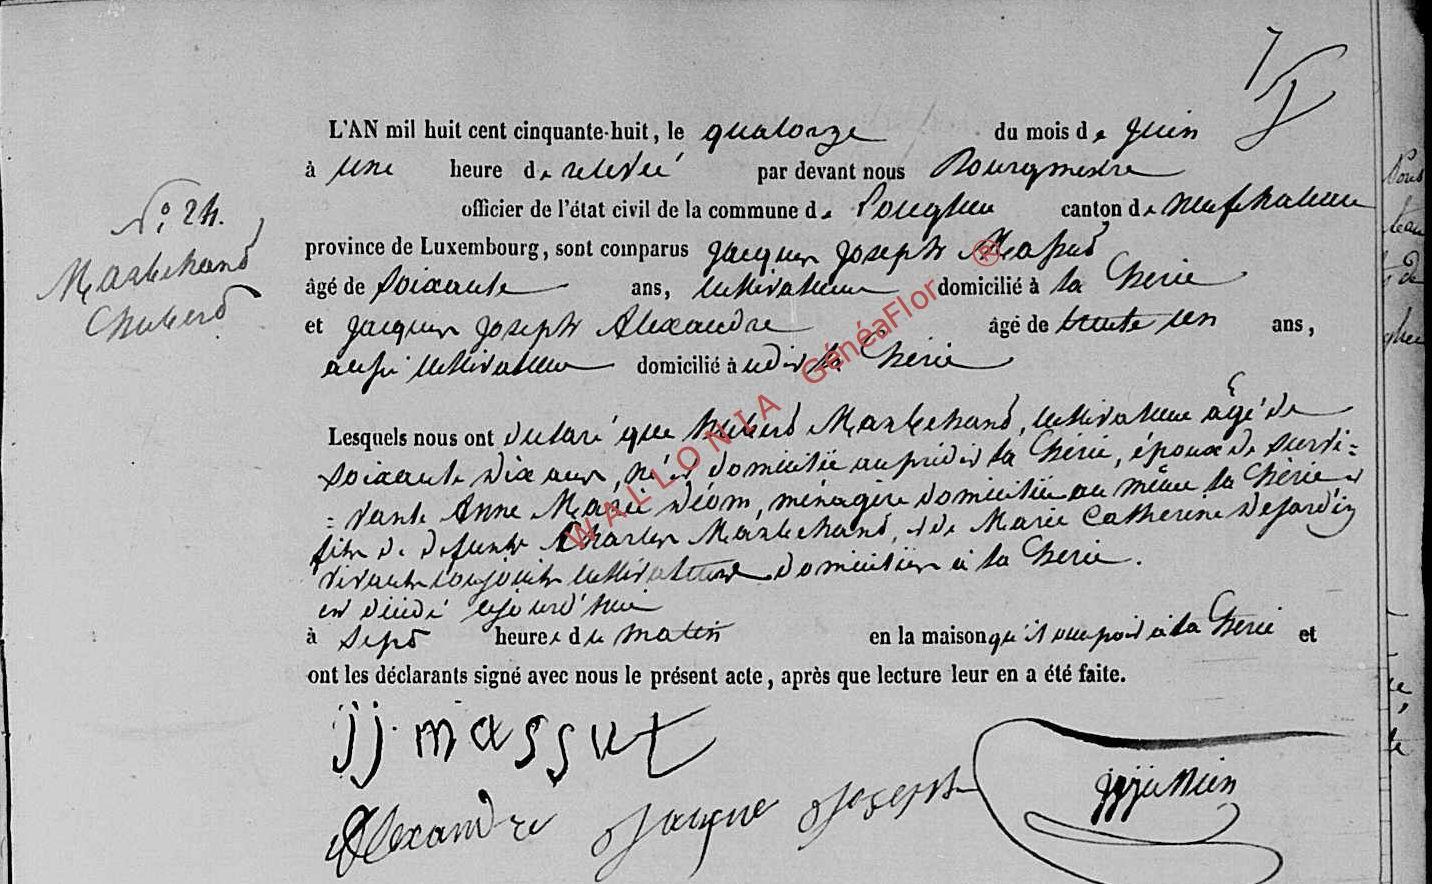 L'AN mil huit cent cinquante-huit, le quatorze du mois de Juin
à une heure de relevée par devant nous Bourgmestre
officier de l'état civil de la commune de Longlier canton de neufchateau
N.º 24.
Marlechand
Hubert
province de Luxembourg, sont comparus Jacques Joseph Massut
âgé de soixante ans, cultivateur domicilié à la Cherie
et Jacques Joseph Alexandre âgé de trente un ans,
aussi cultivateur domicilié à la Cherie
Lesquels nous ont declaré que hubert Marlechand, cultivateur âgé de
soixante dix ans, né et domicilié au la Cherie, époux de survi=
=vante Anne Marie Déom, ménagère domiciliée au même la Cherie et
fils de defunts Charles Marlechand, et de Marie Catherine Dejardin
vivants conjoints cultivateurs domiciliés à la Cherie.
est décédé aujourd'hui
à sept heures du matin en la maison qu'il occupoit à la Cherie et
ont les déclarants signé avec nous le présent acte, après que lecture leur en a été faite.
jj massut
Alexandre Jacque Joseph
WALLONIA GénéaFlor ®